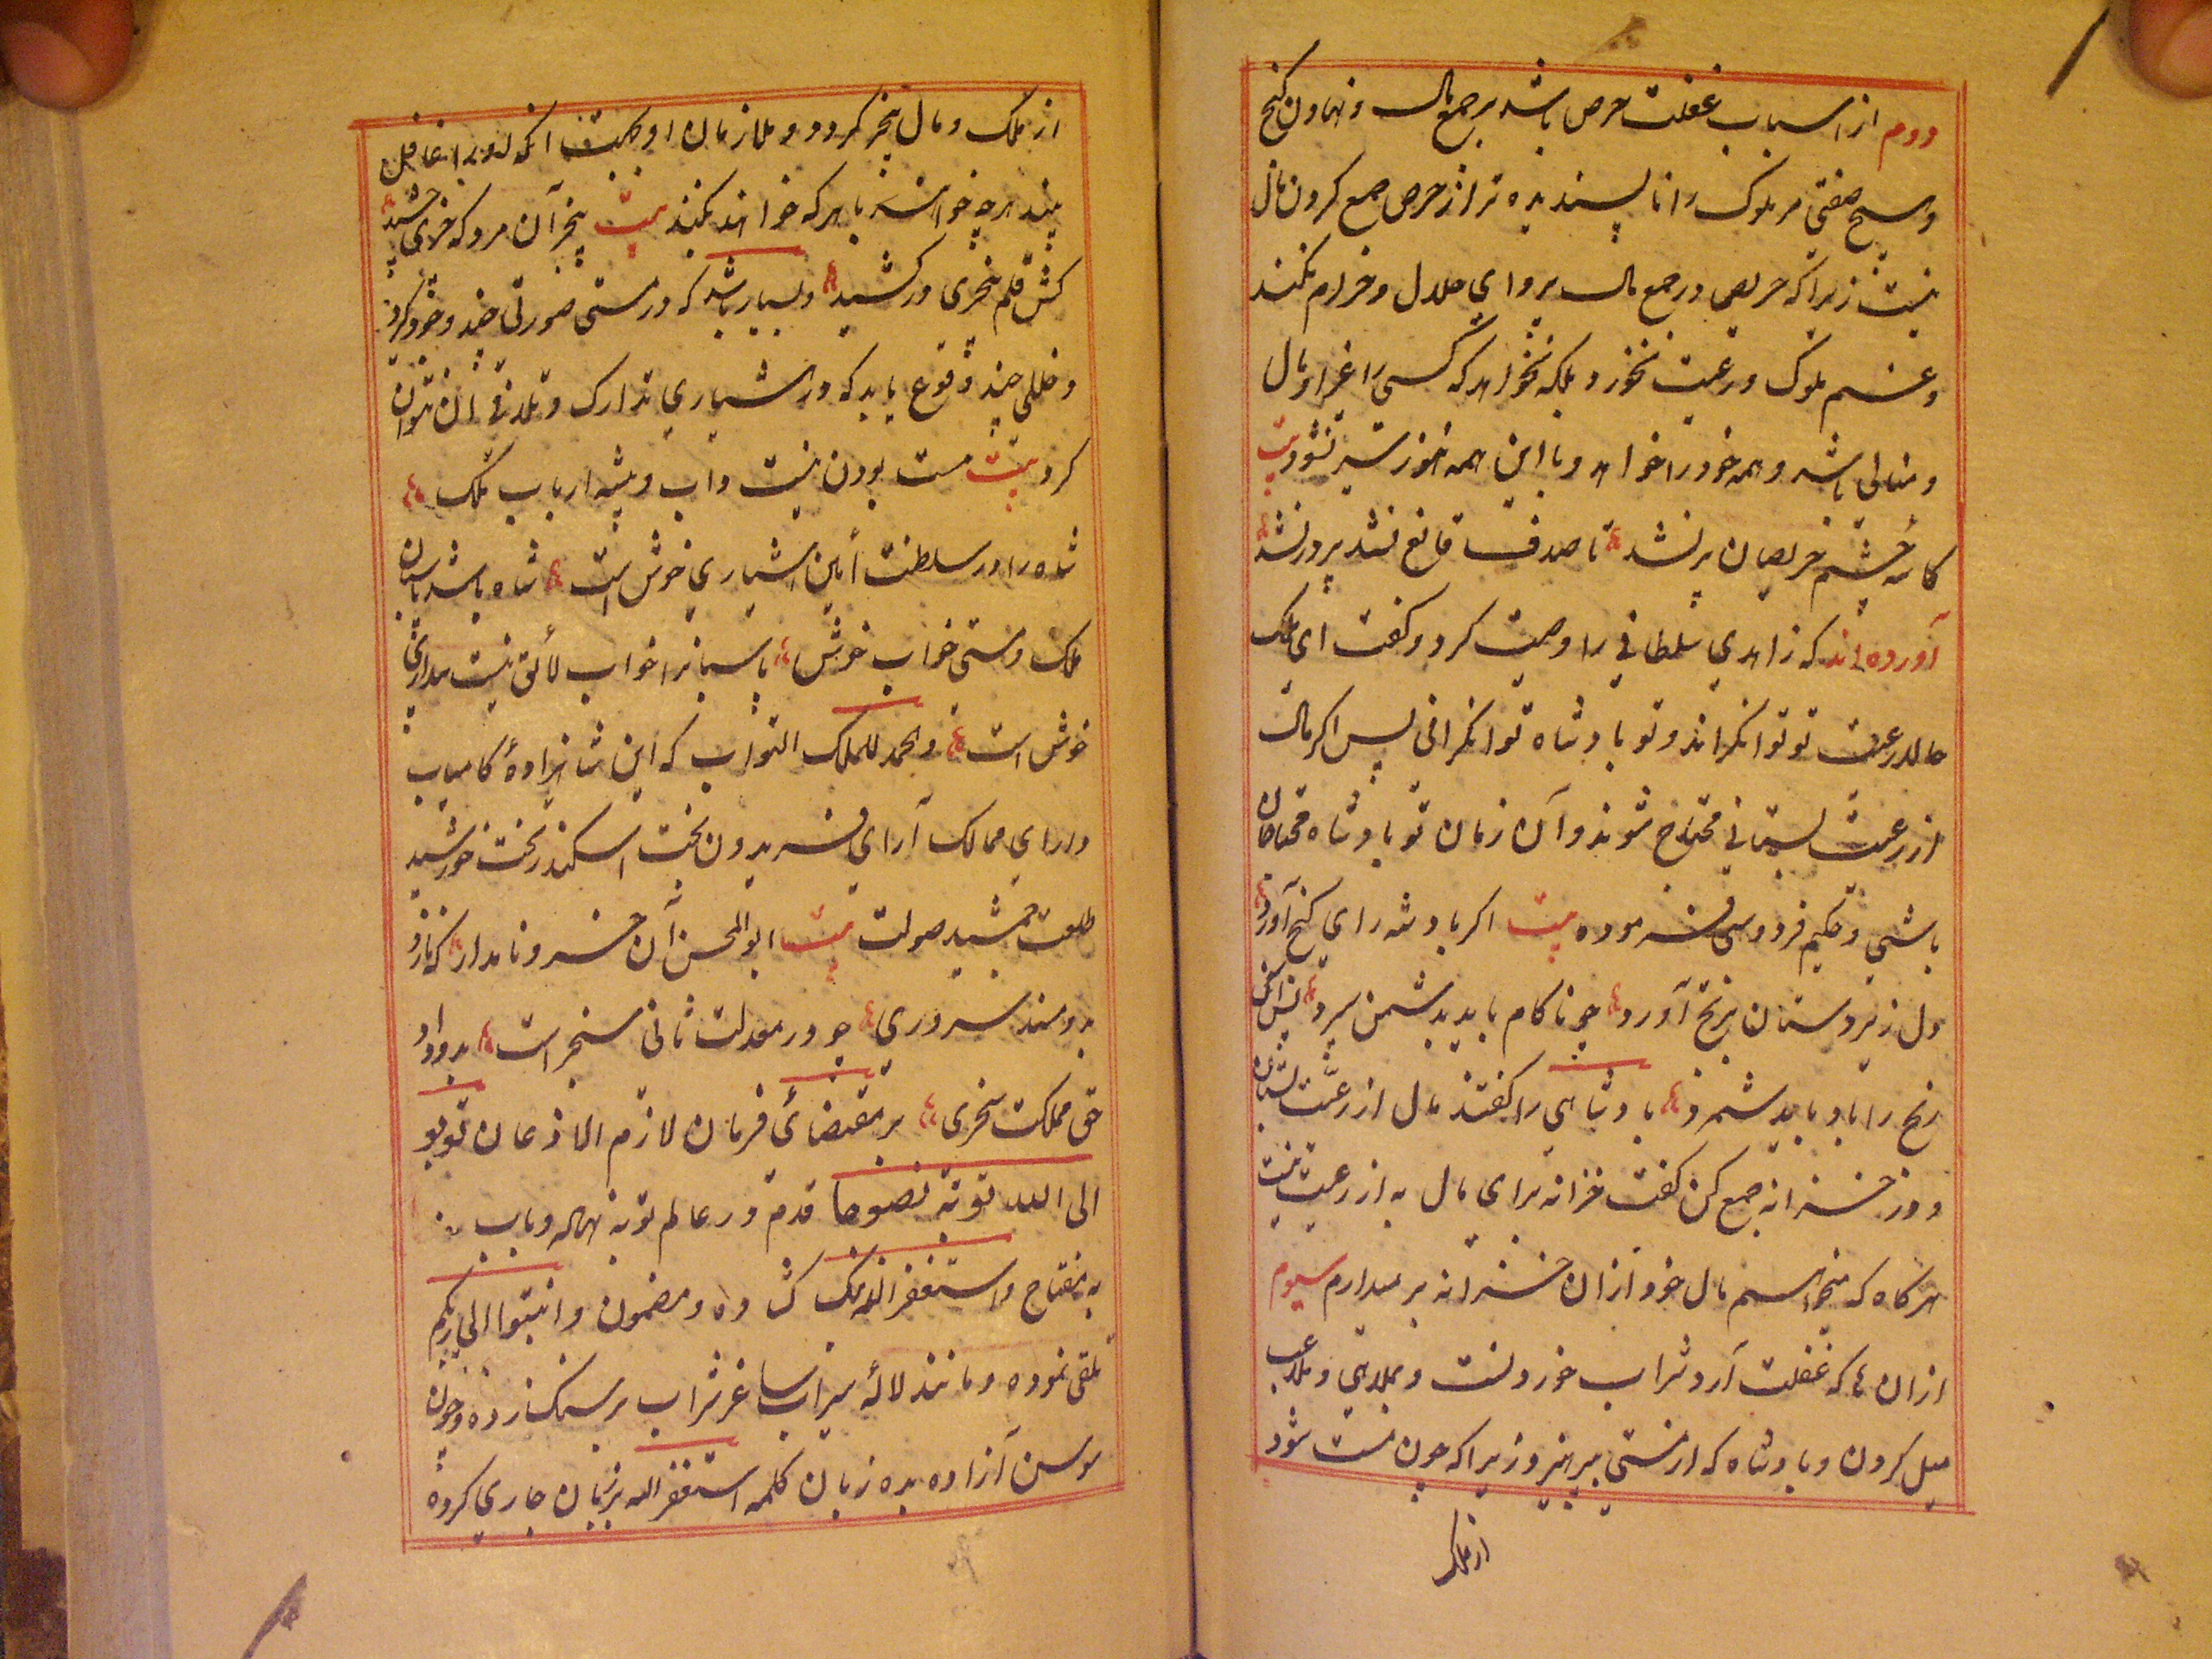 دوم از اسباب غفلت حرص باشد بر جمع مال و نهادن کنج
و هیچ صفتی مر ملوک را نا پسندیده تر از حرص جمع کردن مال
نیست زیرا که حریص در جمع مال پروای حلال و حرام نکند
و غم ملوک و رعیت نخورد بلکه نخواهد که کسی را غیر او مال
و منالی باشد و همه خود را خواهد و با این همه هنوز سیر نشود بیت
کاسهٔ چشم حریصان پر نشد تا صدف قانع نشد پر در نشد
آورده‌اند که زاهدی سلطانی را وصیت کرد و کفت ای ملک
حالا رعیت تو توانکرانند و تو پادشاه توانکرانی پس اکر مال
از رعیت بستانی محتاج شوند و آن زمان تو پادشاه محتاجان
باشی و حکیم فردوسی فرموده بیت اکر پادشه رای کنج آورد
دل زیردستان برنج آورد چو ناکام باید بدشمن سپرد
رنج را باد باید شمرد پادشاهی را کفتند مال از رعیت بستان
و در خزانه جمع کن کفت خزانه برای مال به از رعیت نیست
هرکاه که میخواهم مال خود ازان خزانه بر میدارم سیوم
ازان ها که غفلت آرد شراب خوردنست و بملاهی و ملاعب
میل کردن و پادشاه که از مستی بپرهیزد زیرا که چون مست شود
از ملک
از ملک و مال بیخبر کردد و ملازمان او بجهت آنکه او را غافل
بینند هرچه خواهند با هرکه خواهند بکنند بیت بیخبر آن مرد که چیزی چشید
کش قلم بیخبری در کشید و بسیار باشد که در مستی صورتی چند و خود کرد
و خللی چند وقوع یابد که در هشیاری تدارک و تلافی آن نتوان
کرد بیت مست بودن نیست داب و پیشهٔ ارباب ملک
شاه را در سلطنت آیین هشیاری خوش است شاه باشد پاسبان
ملک و مستی خواب خوش پاسبانرا خواب لائق نیست بیداری
خوش است و الحمد للملک التواب که این شاهزادهٔ کامیاب
دارای ممالک آرای فریدون بخت اسکندر تخت خورشید
طلعت جمشید صولت بیت ابو المحسن آن خسرو نامدار که نازد
بدو مسند سروری چو در معدلت ثانی سنجر است بدو داد
حق مملکت سنجری بر مقتضائ فرمان لازم الاذعان توبوا
الی الله توبة نصوحا قدم در عالم توبه نهاده و باب
به مفتاح و استغفر لذنبک کشاده و مضمون و انیبوا الی ربکم
تلقی نموده و مانند لالهٔ سیراب ساغر شراب بر سنک زده و چون
سوسن آزاده بده زبان کلمه استغفر الله بر زبان جاری کرده